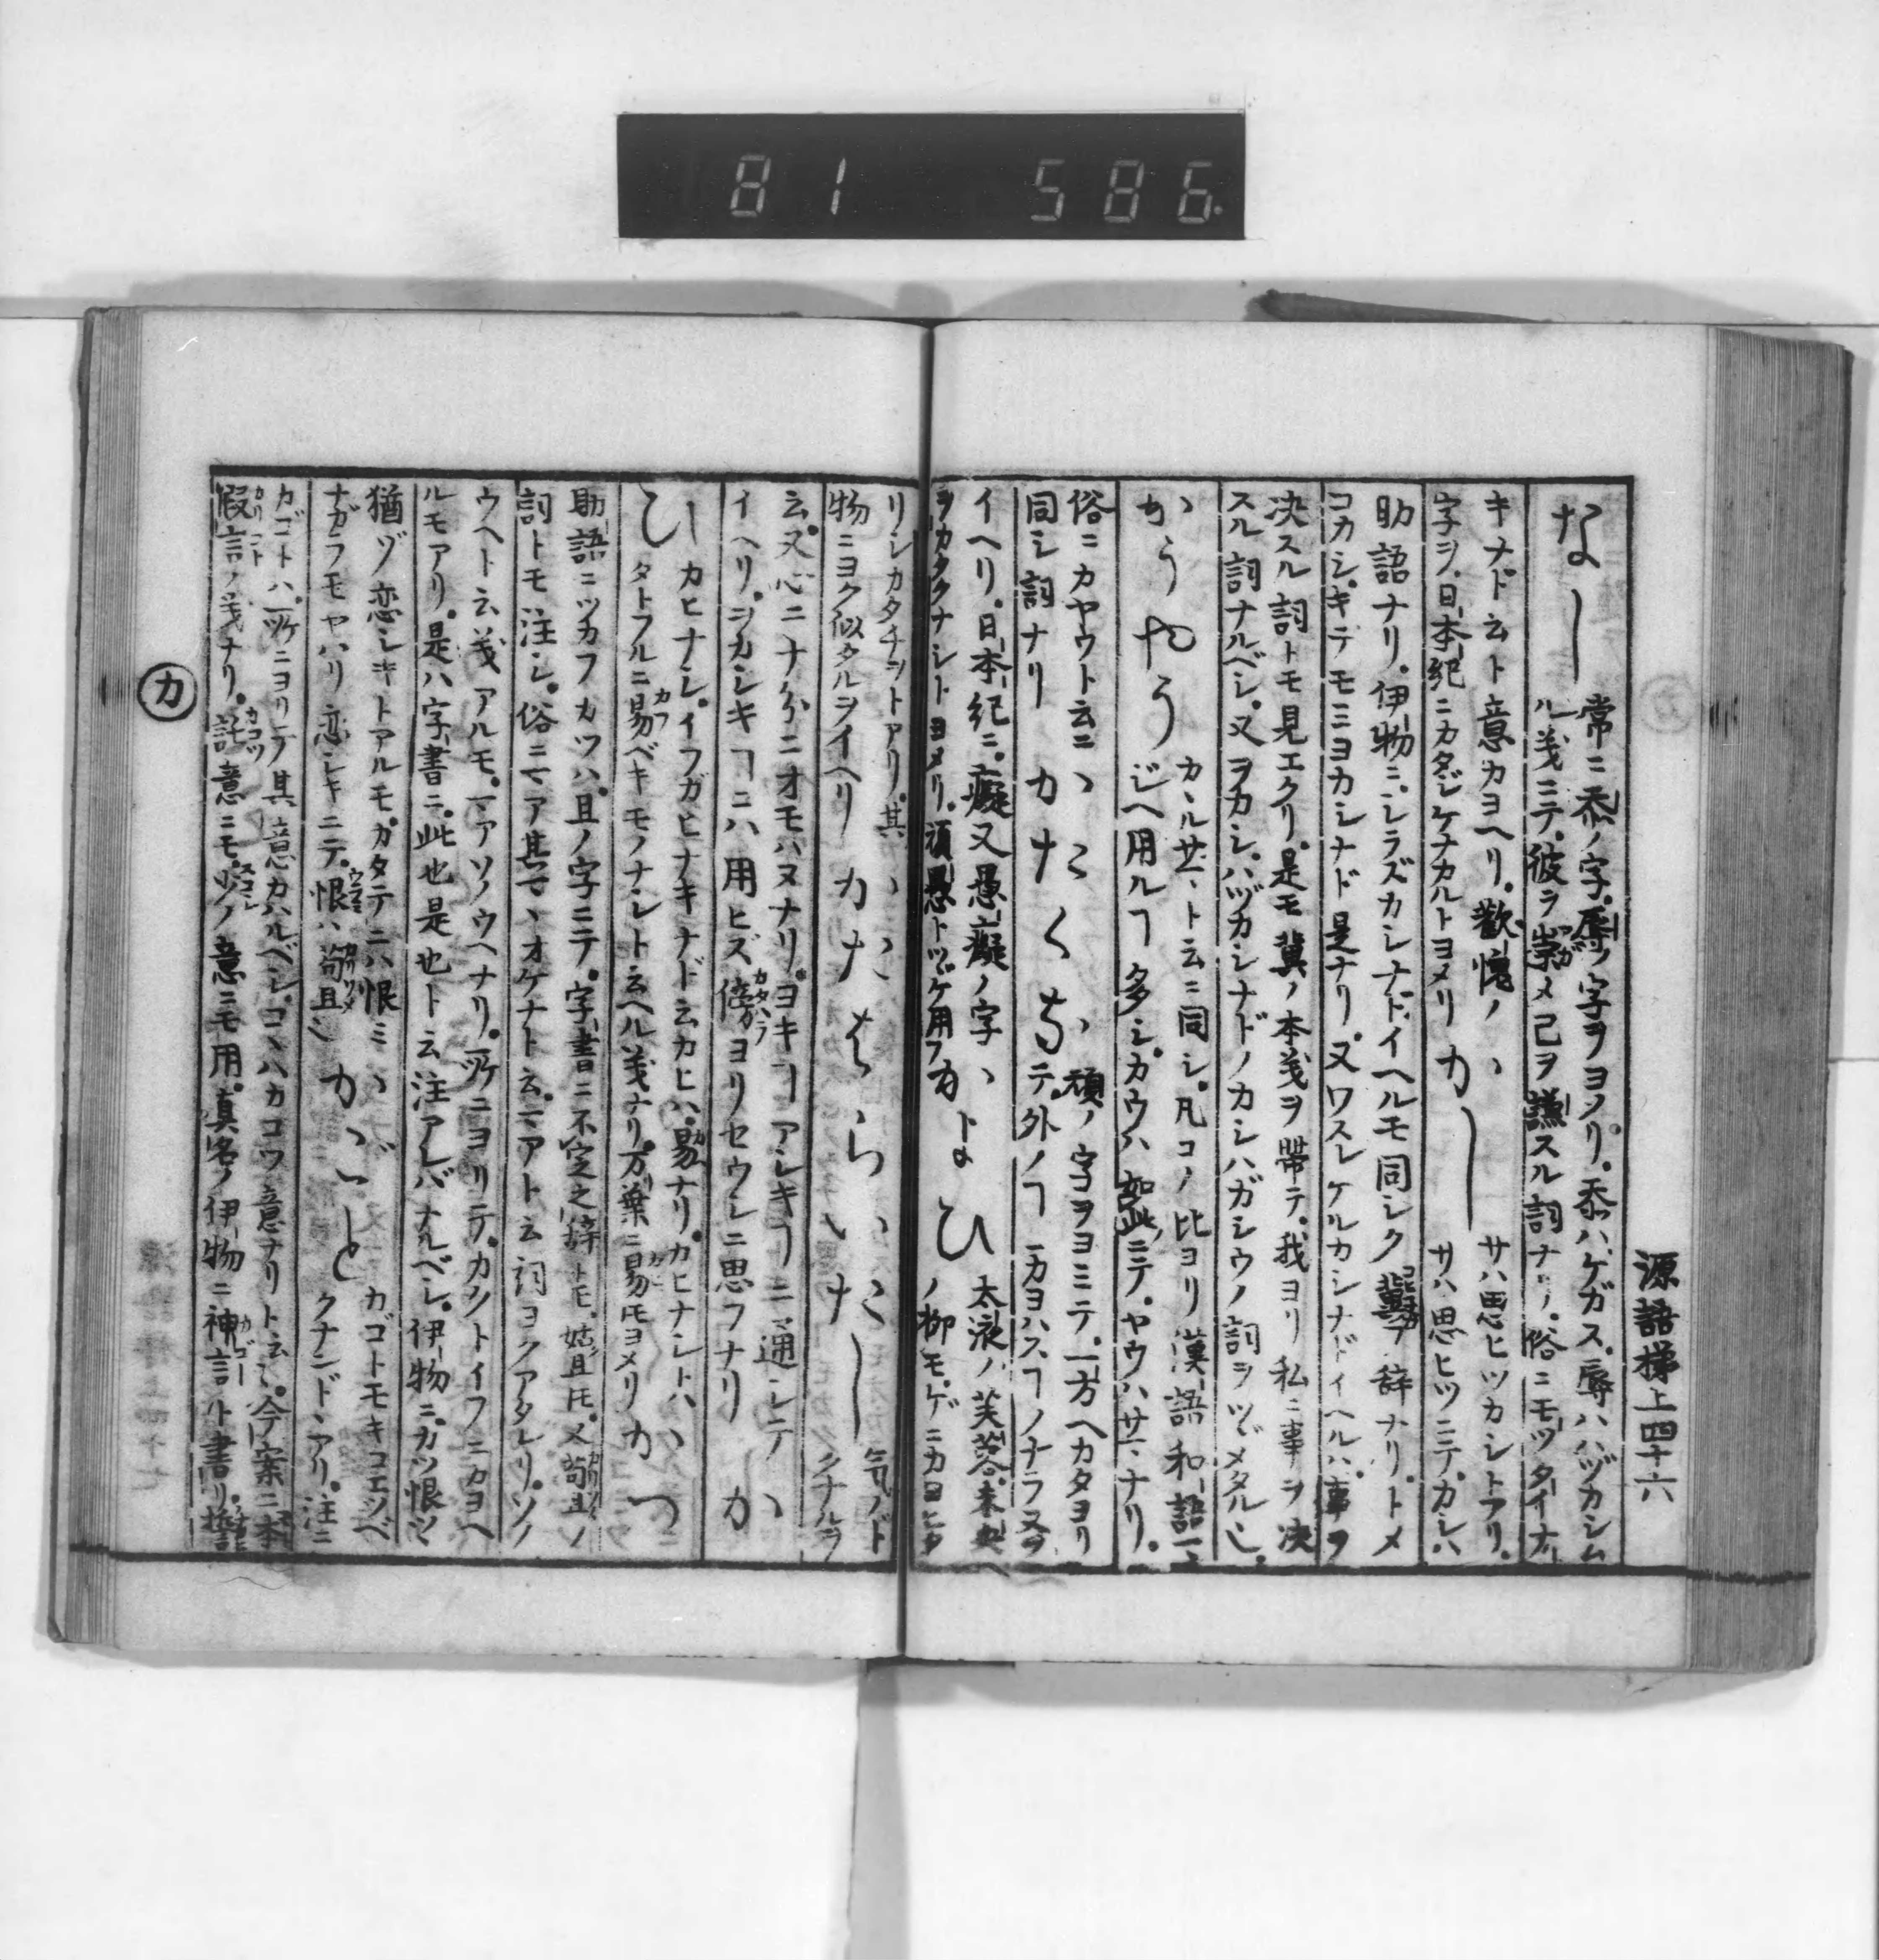 81 586
源語梯上四十六
なし 常ニ忝ノ字辱ノ字ヲヨメリ。忝ハケガス。辱ハハヅカシム
ル義ニテ。彼ヲ崇メ己ヲ謙スル詞ナリ。俗ニモツタイナ
キナド云ト意カヨヘリ。歡愧ノ
字ヲ。日本紀ニカタジケナカルトヨメリ
かし サハ思ヒツカシトアリ。
サハ思ヒツニテ。カシハ
助語ナリ。伊物ニ。シラズカシナド。イヘルモ同シク冀フ辞ナリ。トメ
コカシ。キテモミヨカシナド是ナリ。又ワスレケルカシナドイヘルハ。事ヲ
决スル詞トモ見エタリ。是モ冀ノ本義ヲ帶テ。我ヨリ私ニ事ヲ决
スル詞ナルベシ。又ヲカシ。ハヅカシナドノカシハガシウノ詞ヲツヾメタル也。
かうやう カヽル
ト云ニ同シ。凡コノ比ヨリ漢語和語
ジヘ用ルヿ多シ。カウハ如此ニテ。ヤウハサマナリ。
俗ニカヤウト云ニ
同シ詞ナリ
かたくな 頑ノ字ヲヨミテ。一方ヘカタヨリ
テ。外ノヿニカヨハスヿノナラヌヲ
イヘリ。日本紀ニ。癡又愚癡ノ字
ヲカタクナシトヨメリ。頑愚トツヾケ用フ
かよひ 太液ノ芙蓉未央
ノ柳モ。ゲニカヨヒタ
リシカタチヲトアリ。其
物ニヨク似タルヲイヘリ
かたはらいたし 気ノド
クナルヲ
云。又心ニナクニオモハヌナリ。ヨキヿアシキヿニ通シテ
イヘリ。ヲカシキヿニハ用ヒズ傍ヨリセウシニ思フナリ
かひなし カヒナシ。イフガヒナキナド云カヒハ。易ナリ。カヒナシトハ
タトフルニ易ベキモノナシト云ヘル義ナリ。万葉ニ易ヒモヨメリ
かつ
助語ニツカフカツハ。且ノ字ニテ。字書ニ不定之辞トモ。姑且トモ。又苟且ノ
詞トモ注シ。俗ニマア其マヽオケナト云。マアト云詞ヨクアタレリ。ソノ
ウヘト云義アルモ。マアソノウヘナリ。所ニヨリテ。カクトイフニカヨヘ
ルモアリ。是ハ字書ニ。此也是也ト云注アレバナルベシ。伊物ニ。カツ恨ツヽ
猶ゾ恋シキトアルモ。カタテニハ恨ミ
ナガラモヤハリ恋シキニテ。恨ハ苟且
かごと カゴトモキコエツベ
クナンドアリ。注ニ
カゴトハ。所ニヨリテ其意カハルベシ。コヽハカコツ意ナリト云々。今案ニ本
假言ノ義ナリ。託意ニモ。少ノ意ニモ用。真名ノ伊物ニ神言ト書リ
カ